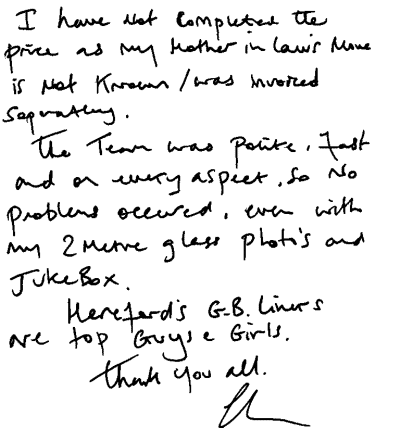 I have Not Completed the
price as my Mother in Law's Move
is Not Known / was invoiced
separately.
The Team was Polite, Fast
and on every aspect, So No
problems occured, even with
my 2 Metre glass Photo's and
JukeBox.
Hereford's G.B. Liners
are top Guys & Girls.
Thank you all.